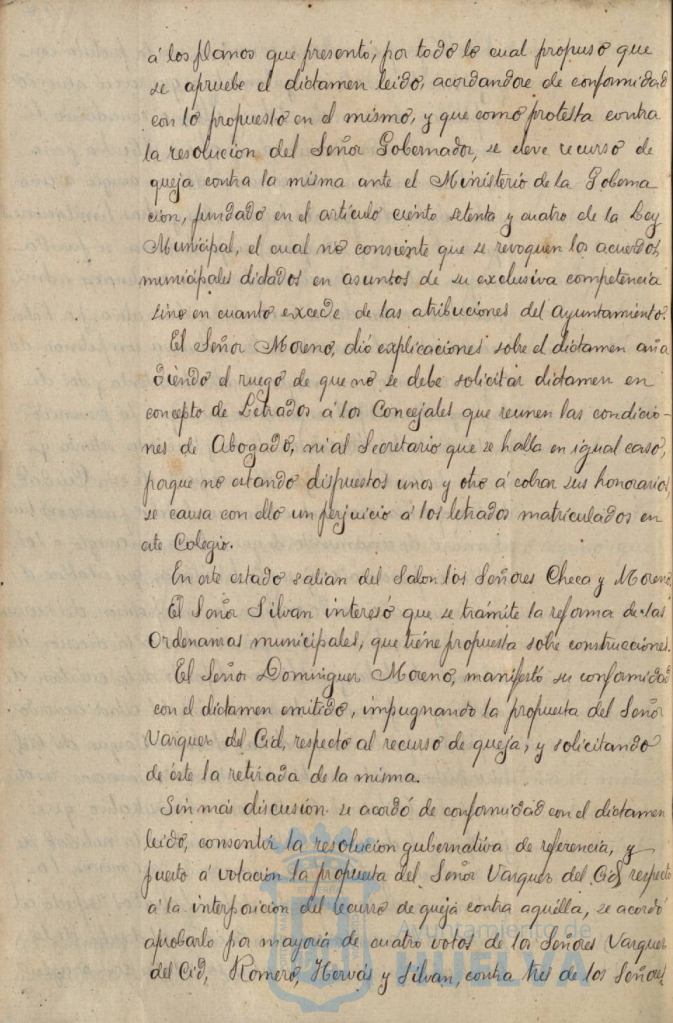 á los planos que presentó, por todo lo cual propuso que
se apruebe el dictamen leido, acordandose de conformidad
con lo propuesto en el mismo, y que como protesta contra
la resolucion del Señor Gobernador, se eleve recurso de
queja contra la misma ante el Ministerio de la Goberna
cion, fundado en el artículo ciento setenta y cuatro de la Ley
Municipal, el cual no consiente que se revoquen los acuerdos
municipales dictados en asuntos de su exclusiva competencia
sino en cuanto excede de las atribuciones del Ayuntamiento.
El Señor Moreno, dió explicaciones sobre el dictamen aña
diendo el ruego de que no se debe solicitar dictamen en
concepto de Letrados á los Concejales que reunen las condicio-
nes de Abogado, ni al Secretario que se halla en igual caso,
porque no estando dispuestos unos y otro á cobrar sus honorarios,
se causa con ello un perjuicio á los letrados matriculados en
este Colegio.
En este estado salian del Salon los Señores Checa y Moreno.
El Señor Silvan interesó que se trámite la reforma de las
Ordenanzas municipales, que tiene propuesta sobre construcciones.
El Señor Dominguez Moreno, manifestó su conformidad
con el dictamen emitido, impugnando la propuesta del Señor
Vazquez del Cid, respecto al recurso de queja, y solicitando
de éste la retirada de la misma.
Sin más discusion se acordó de conformidad con el dictamen
leido, consentir la resolucion gubernativa de referencia, y
puesto á votación la propuesta del Señor Vazquez del Cid, respecto
á la interposicion del recurso de queja contra aquélla, se acordó
aprobarlo por mayoría de cuatro votos de los Señores Vazquez
del Cid, Romero, Hervás y Silvan, contra tres de los Señores
Ayuntamiento de
HUELVA